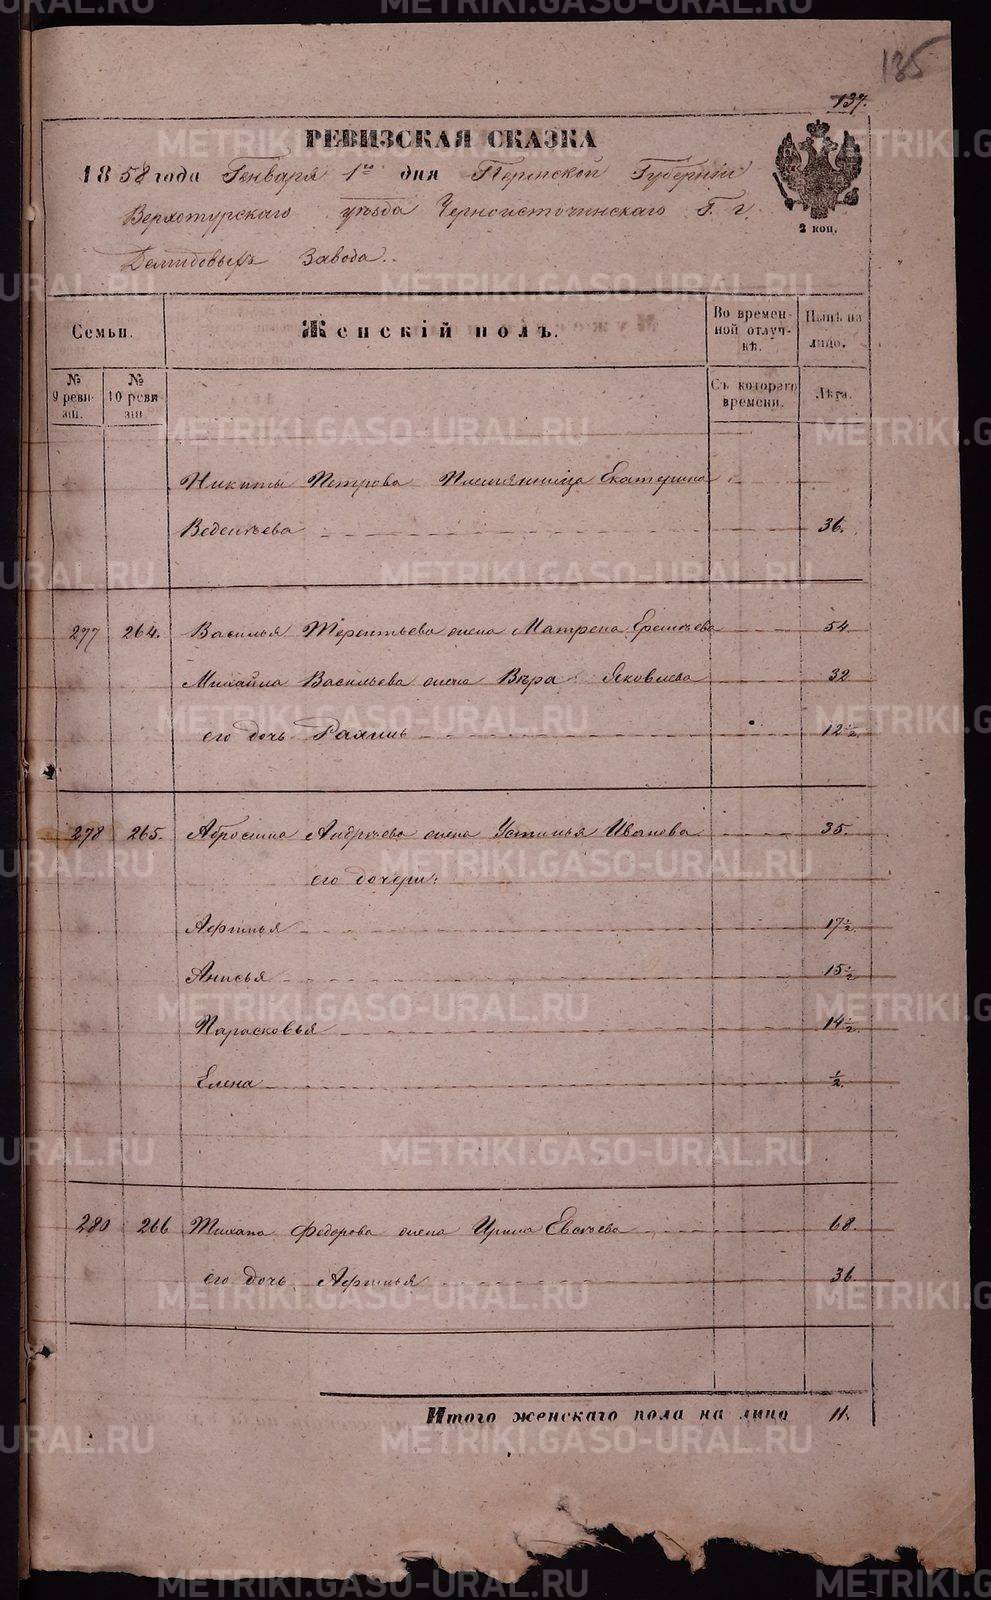 135
137.
РЕВИЗСКАЯ СКАЗКА
1858 года Генваря 1го дня Пермской Губернии
Верхотурскаго уѣзда Черноисточинскаго Г. г.
Демидовыхъ Завода.
2 коп.
Семьи.
Женскій полъ.
Во временной отлучкѣ.
Нынѣ на лицо.
№ 9 ревизіи.
№ 10 ревизіи
Съ котораго времени.
Лѣта.
Никиты Петрова Племянница Екатерина
Веденѣева 36.
277 264. Василья Терентьева жена Матрена 54
Михайла Васильева жена Вѣра Яковлева 32
его дочь Рахиль 12 1/2
278 265. Абросима Андрѣева жена Устинья Иванова 35.
его дочери:
Афимья 17 1/2
Анисья 15 1/2
Парасковья 14 1/2
Елена 1/2
280 266 Федорова жена Ирина 68.
его дочь Афимья 36.
Итого женскаго пола на лицо 11.
METRIKI.GASO-URAL.RU